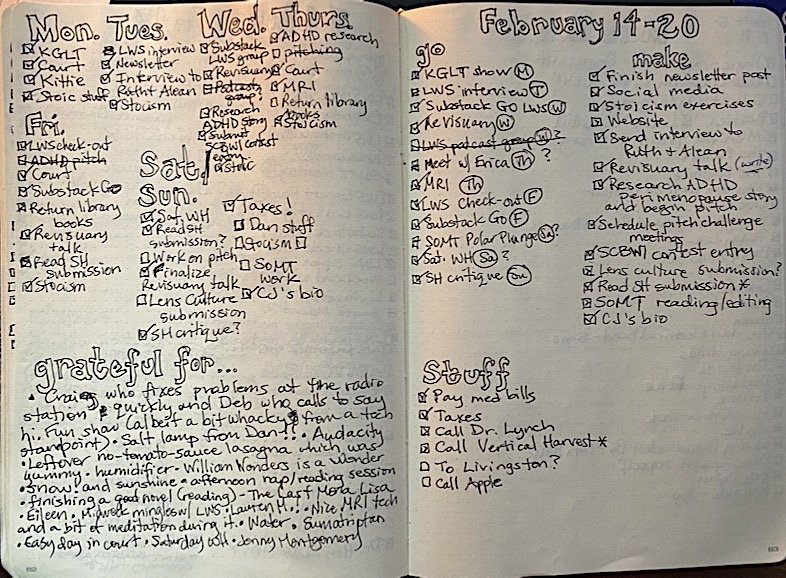 Mon.
KGLT
Court
Kittie
Stoic stuff
Tues.
LWS interview
Newsletter
Interview to
Ruth + Alean
Stoicism
Wed.
Substack
LWS group
Revisuary
Podcasts
group?
Research
ADHD story
Submit
SCBWI contest
entry
Stoic
Thurs.
ADHD research
pitching
Court
MRI
Return library
books
Stoicism
Fri.
LWS check-out
ADHD pitch
Court
Substack Go
Return library
books
Revisuary
talk
Read SH
submission
Stoicism
Sat/
Sun.
Sat. WH
Read SH
submission?
Work on pitch
Finalize
Revisuary talk
Lens Culture
submission
SH critique?
Taxes!
Dan stuff
Stoicism
SOMT
work
CJ's bio
grateful for...
• Craig who fixes problems at the radio
station quickly and Deb who calls to say
hi. Fun show (albeit a bit whacky from a tech
standpoint) • Salt lamp from Dan!! • Audacity
• Leftover no-tomato-sauce lasagna which was
yummy • humidifier • William Wonders is a wonder
• Snow! and sunshine • afternoon nap/reading session
• finishing a good novel (reading) - The Last Mona Lisa
• Eileen • Midweek mingles w/ LWS • Lauren M.! • Nice MRI tech
and a bit of meditation during it • Water • Sumatriptan
• Easy day in court • Saturday WH • Jenny Montgomery
82
February 14-20
go
KGLT show M
LWS interview T
Substack GO LWS W
Revisuary W
LWS podcast group W?
Meet w/ Erica Th ?
MRI Th
LWS Check-out F
Substack Go F
SOMT Polar Plunge Sa?
Sat. WH Sa ?
SH critique Su
make
Finish newsletter post
Social media
Stoicism exercises
Website
Send interview to
Ruth + Alean
Revisuary talk (write)
Research ADHD
Perimenopause story
and begin pitch
Schedule pitch challenge
meetings
SCBWI contest entry
Lens culture submission?
Read SH submission*
SOMT reading/editing
CJ's bio
Stuff
Pay med bills
Taxes
Call Dr. Lynch
Call Vertical Harvest*
To Livingston?
Call Apple
83